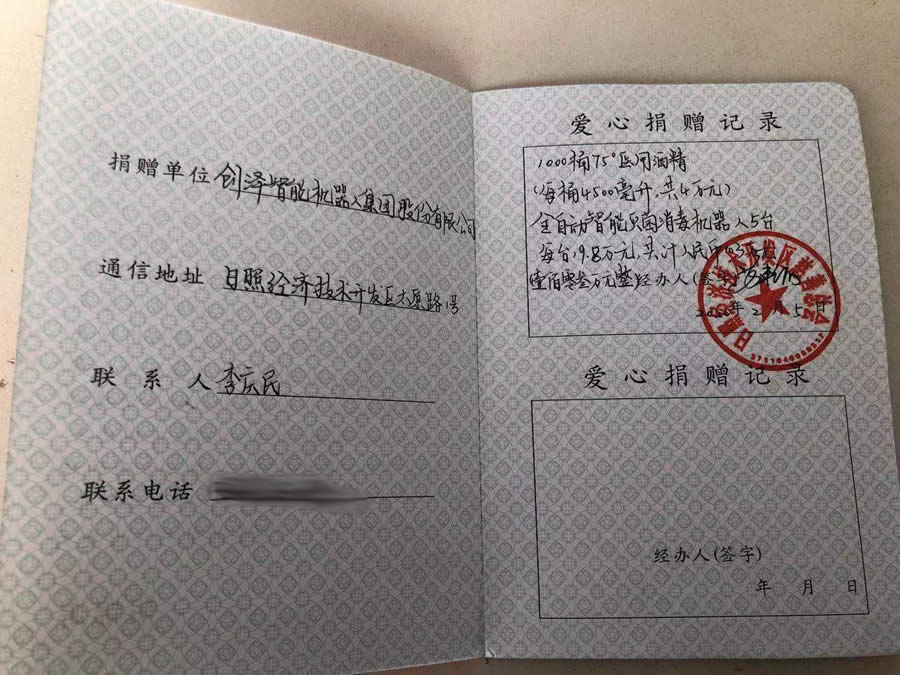 捐赠单位 创泽智能机器人集团股份有限公司
通信地址 日照经济技术开发区太原路号
联 系 人 李庆民
联系电话
爱心捐赠记录
1000桶75°医用酒精
(每桶4500毫升,共4万元)
全自动智能灭菌消毒机器人5台
每台19.8万元,共计人民币103万元
壹佰零叁万元整 经办人(签字)
2020年2月5日
日照经济技术开发区慈善总会
爱心捐赠记录
经办人(签字)
年 月 日